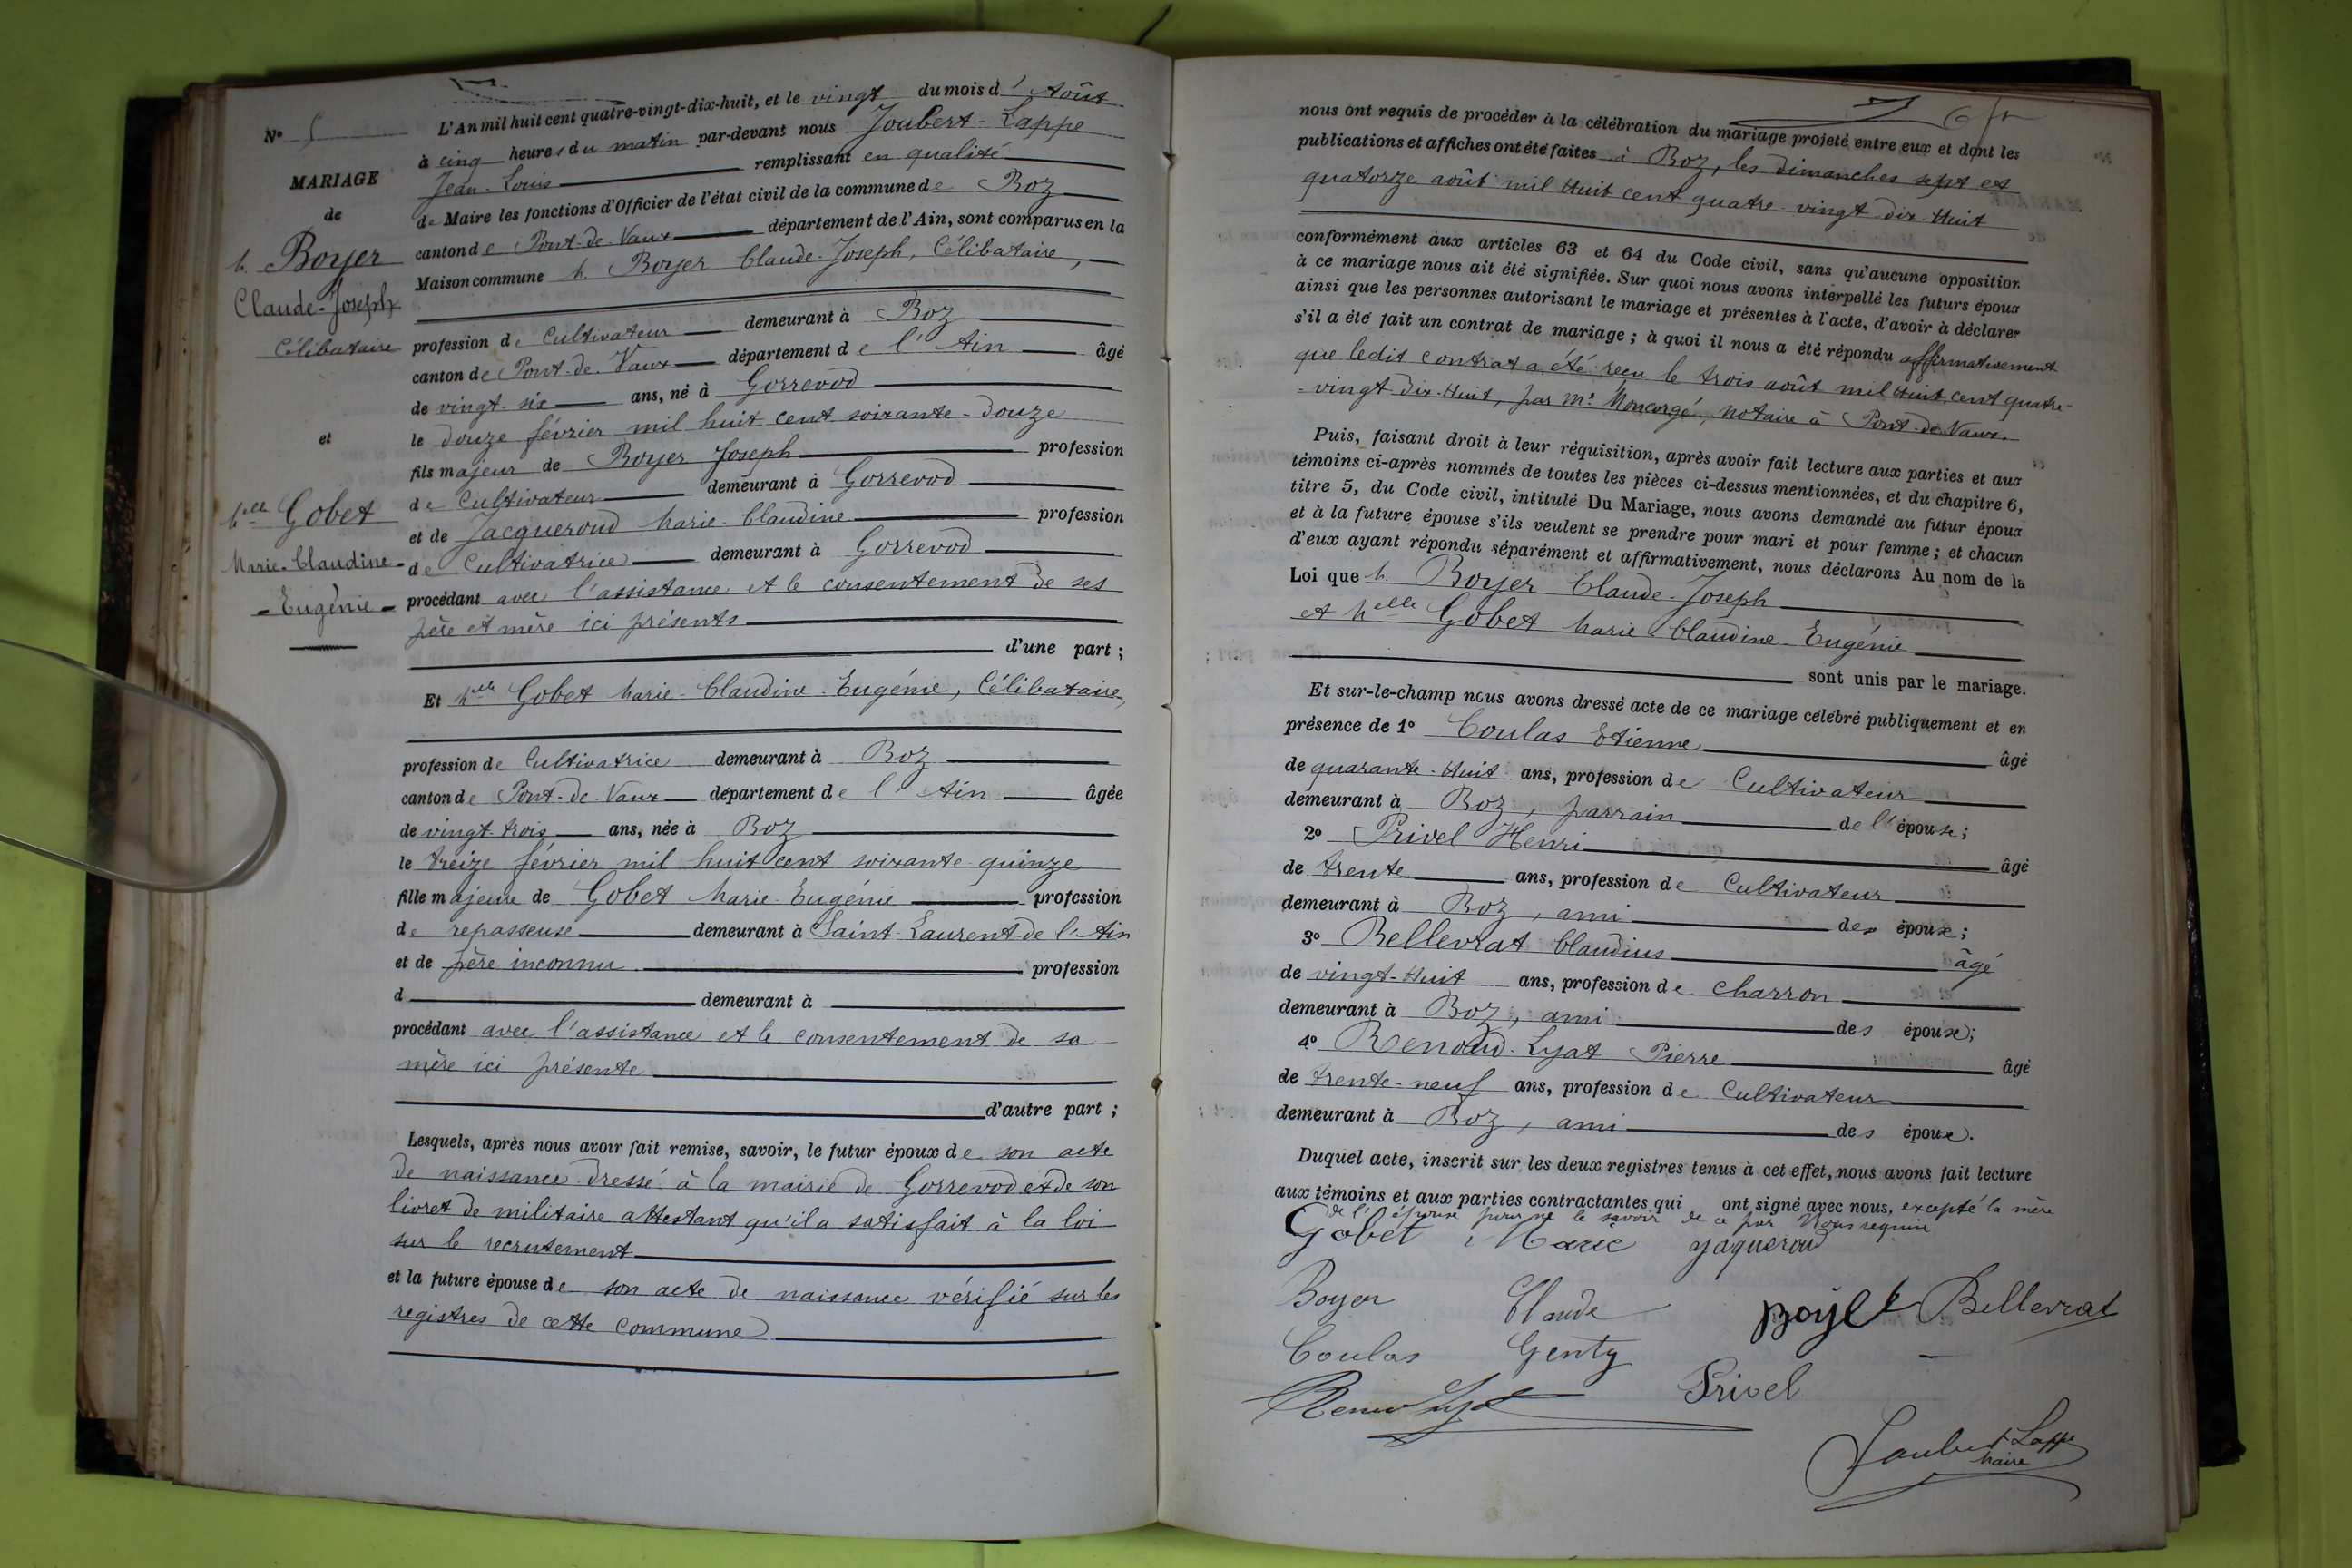 N° 5
MARIAGE
de
M. Boyer
Claude-Joseph
Célibataire
et
Melle Gobet
Marie-Claudine-
-Eugénie-
L'An mil huit cent quatre-vingt-dix-huit, et le vingt du mois d'Août
à cinq heures du matin par-devant nous Joubert-Lappe
Jean-Louis remplissant en qualité
de Maire les fonctions d'Officier de l'état civil de la commune de Boz
canton de Pont-de-Vaux département de l'Ain, sont comparus en la
Maison commune M. Boyer Claude-Joseph, Célibataire,
profession de Cultivateur demeurant à Boz
canton de Pont-de-Vaux département de l'Ain âgé
de vingt-six ans, né à Gorrevod
le douze février mil huit cent soixante-douze
fils majeur de Boyer Joseph profession
de Cultivateur demeurant à Gorrevod
et de Jacqueroud Marie-Claudine profession
de Cultivatrice demeurant à Gorrevod
procédant avec l'assistance et le consentement de ses
père et mère ici présents
d'une part ;
Et Melle Gobet Marie-Claudine-Eugénie, Célibataire,
profession de Cultivatrice demeurant à Boz
canton de Pont-de-Vaux département de l'Ain âgée
de vingt-trois ans, née à Boz
le treize février mil huit cent soixante-quinze
fille majeure de Gobet Marie-Eugénie profession
de repasseuse demeurant à Saint-Laurent-de-l'Ain
et de père inconnu profession
d demeurant à
procédant avec l'assistance et le consentement de sa
mère ici présente
d'autre part ;
Lesquels, après nous avoir fait remise, savoir, le futur époux de son acte
de naissance dressé à la mairie de Gorrevod et de son
livret de militaire attestant qu'il a satisfait à la loi
sur le recrutement
et la future épouse de son acte de naissance vérifié sur les
registres de cette commune
nous ont requis de procéder à la célébration du mariage projeté entre eux et dont les
publications et affiches ont été faites à Boz, les dimanches sept et
quatorze août mil huit cent quatre-vingt-dix-huit
conformément aux articles 63 et 64 du Code civil, sans qu'aucune opposition
à ce mariage nous ait été signifiée. Sur quoi nous avons interpellé les futurs époux
ainsi que les personnes autorisant le mariage et présentes à l'acte, d'avoir à déclarer
s'il a été fait un contrat de mariage ; à quoi il nous a été répondu affirmativement
que ledit contrat a été reçu le trois août mil huit cent quatre-
-vingt-dix-huit, par Me Moncorgé, notaire à Pont-de-Vaux.
Puis, faisant droit à leur réquisition, après avoir fait lecture aux parties et aux
témoins ci-après nommés de toutes les pièces ci-dessus mentionnées, et du chapitre 6,
titre 5, du Code civil, intitulé Du Mariage, nous avons demandé au futur époux
et à la future épouse s'ils veulent se prendre pour mari et pour femme ; et chacun
d'eux ayant répondu séparément et affirmativement, nous déclarons Au nom de la
Loi que M. Boyer Claude-Joseph
et Melle Gobet Marie-Claudine-Eugénie
sont unis par le mariage.
Et sur-le-champ nous avons dressé acte de ce mariage célébré publiquement et en
présence de 1° Coulas Etienne âgé
de quarante-huit ans, profession de Cultivateur
demeurant à Boz, parrain de l'épouse ;
2° Privel Henri âgé
de trente ans, profession de Cultivateur
demeurant à Boz, ami des époux ;
3° Bellevrat Claudius âgé
de vingt-huit ans, profession de charron
demeurant à Boz, ami des époux ;
4° Renoud-Lyat Pierre âgé
de trente-neuf ans, profession de Cultivateur
demeurant à Boz, ami des époux.
Duquel acte, inscrit sur les deux registres tenus à cet effet, nous avons fait lecture
aux témoins et aux parties contractantes qui ont signé avec nous, excepté la mère
de l'épouse pour ne le savoir de ce par nous requise
Gobet Marie Jaqueroud
Boyer Claude Boyer Bellevrat
Coulas Genty Privel
Renoud Lyat
Joubert-Lappe
Maire